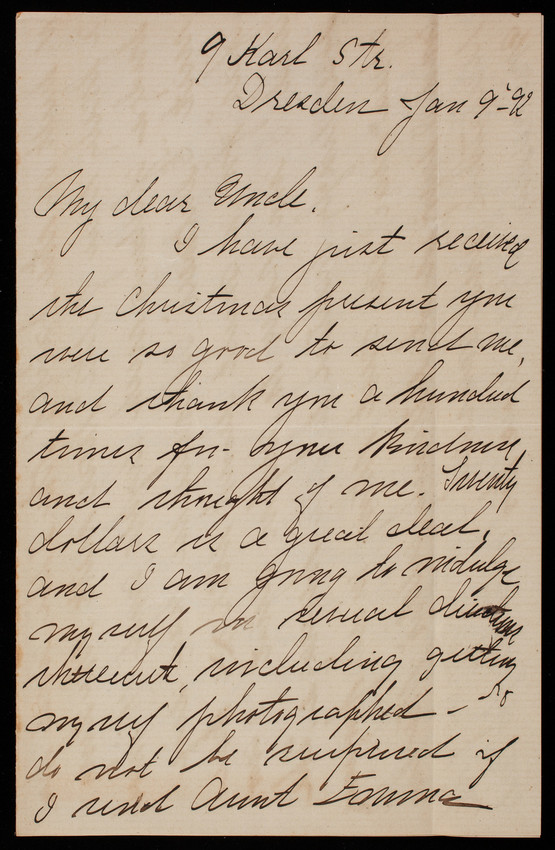 9 Karl Str.
Dresden Jan 9th-92
My dear Uncle.
I have just received
the Christmas present you
were so good to send me,
and thank you a hundred
times for your kindness
and thought of me. Twenty
dollars is a great deal,
and I am going to indulge
myself in several directions
including getting
myself photographed - So
do not be surprised if
I send Aunt Emma